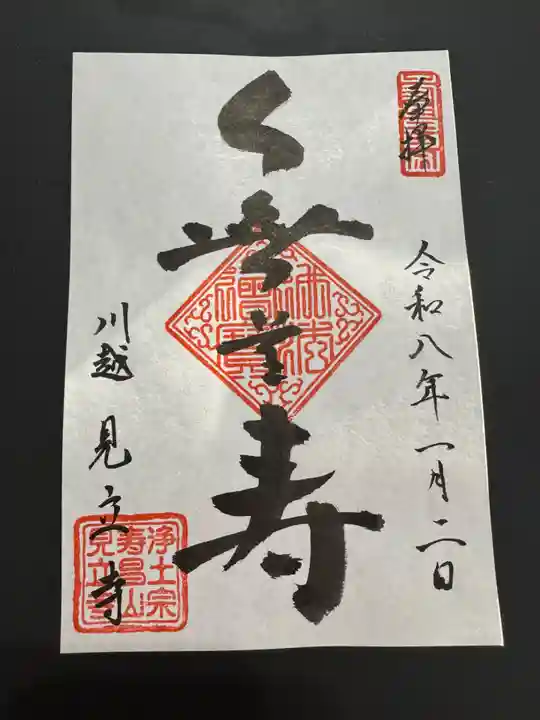 奉拝
令和八年一月二日
無量寿
佛法
僧寳
川越 見立寺
浄土宗
寿昌山
見立寺